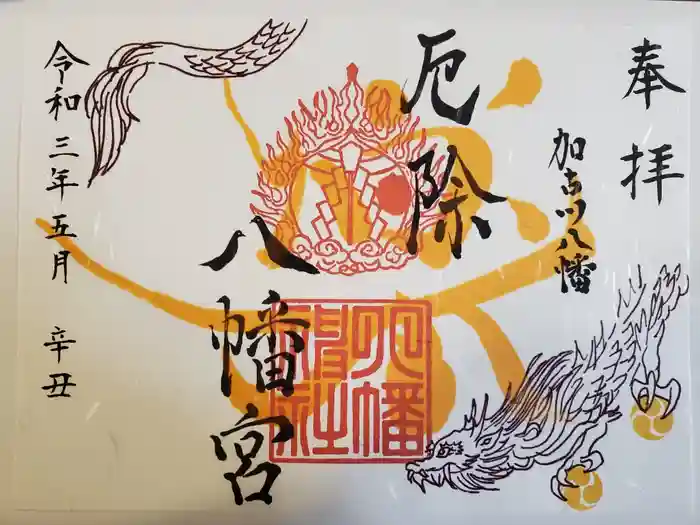 奉拝
加古川八幡
厄除
八幡宮
八幡神社
令和三年五月 辛丑